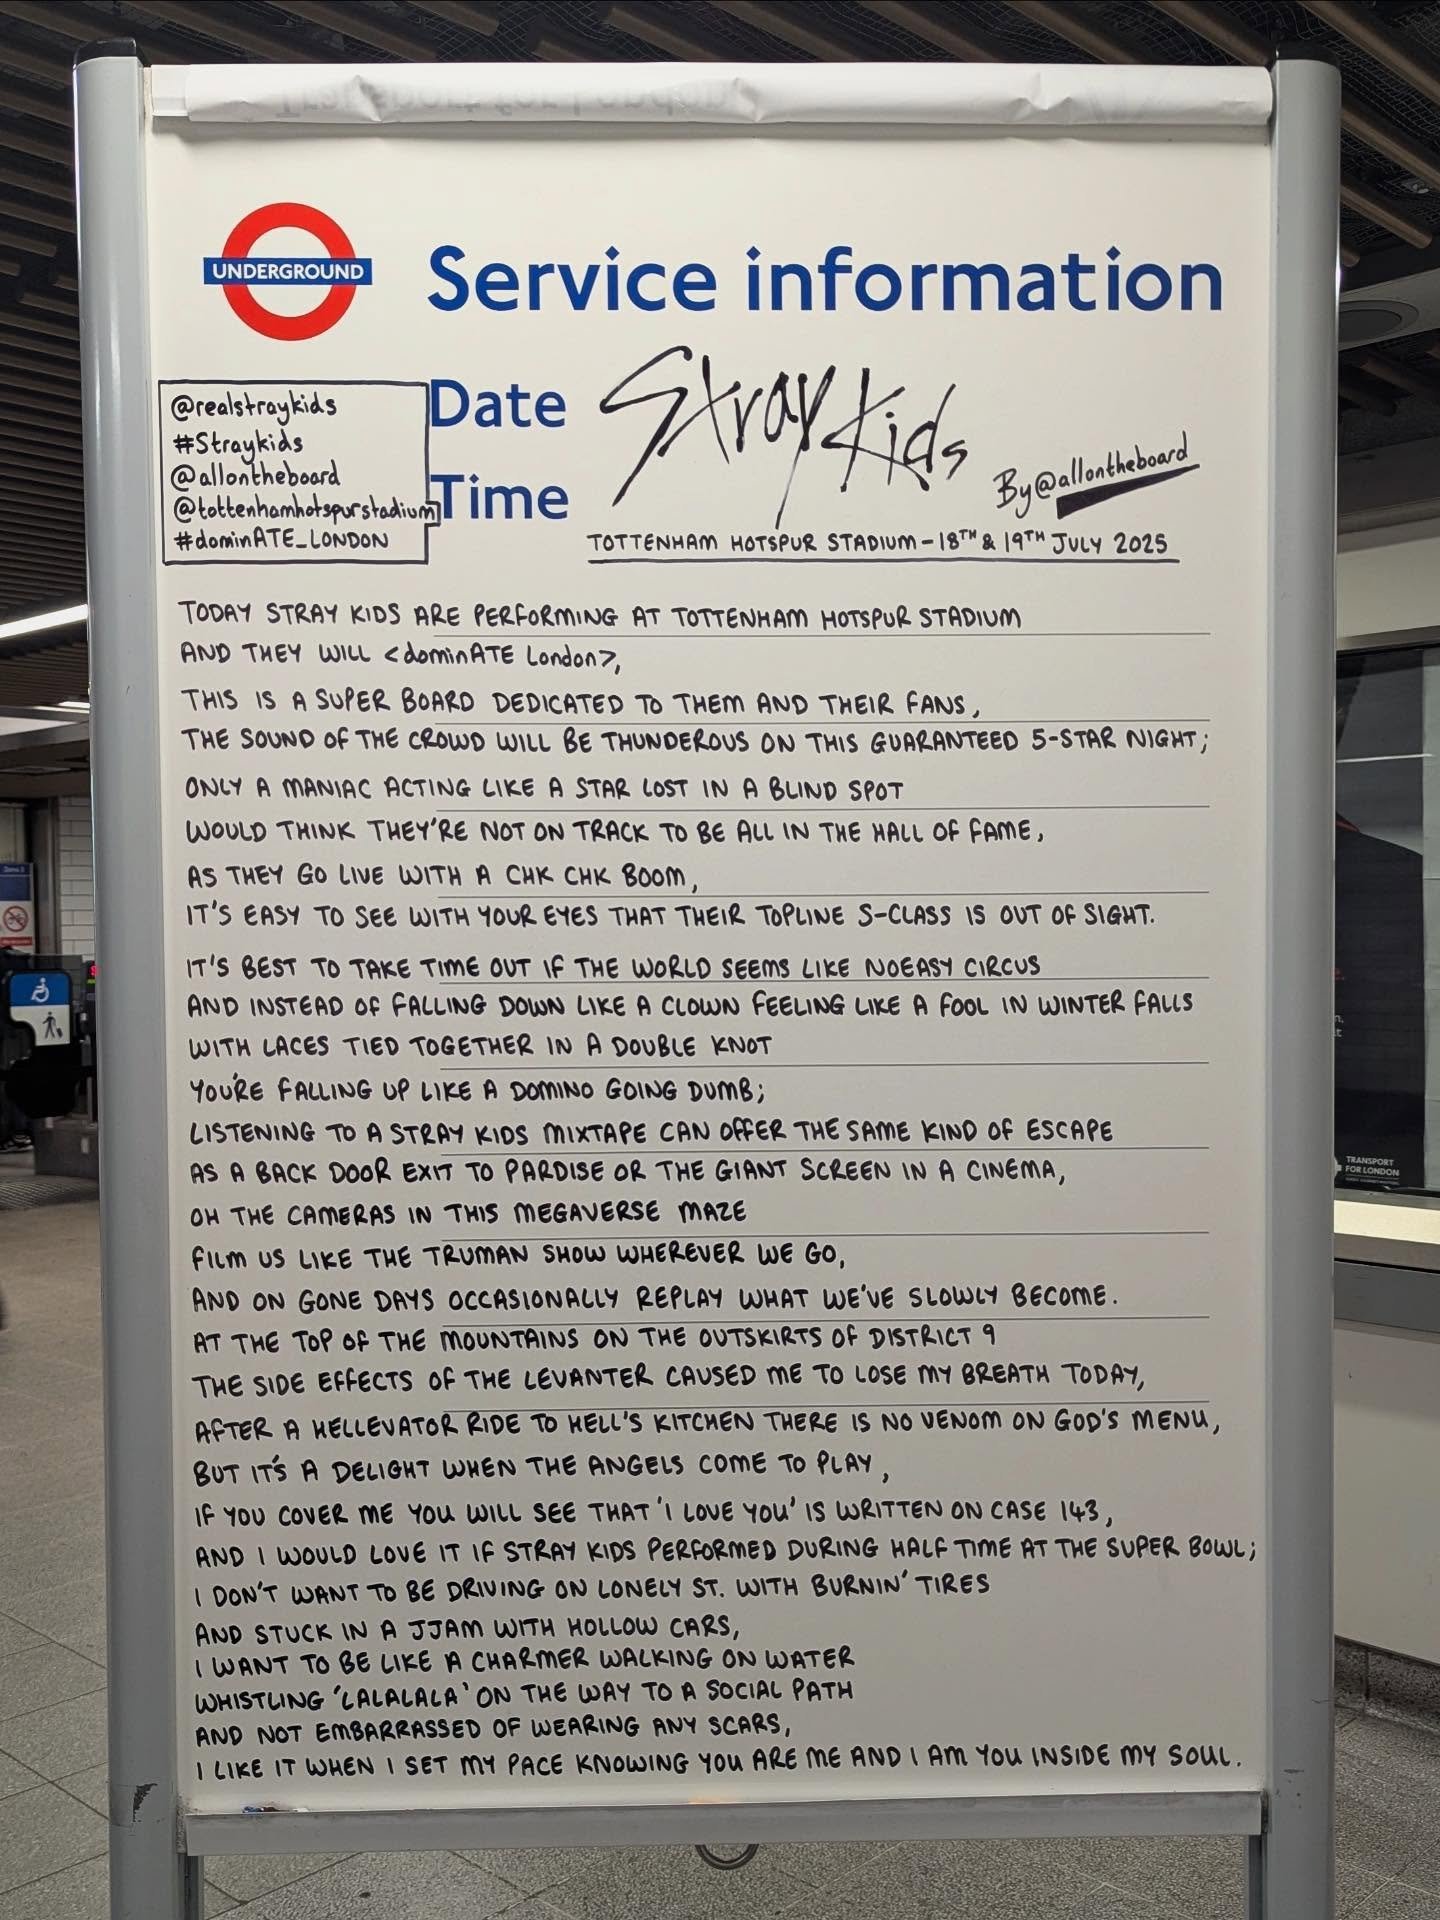 UNDERGROUND
Service information
Date
Time
Stray Kids
By @allontheboard
@realstraykids
#Straykids
@allontheboard
@tottenhamhotspurstadium
#dominATE_LONDON
TOTTENHAM HOTSPUR STADIUM – 18TH & 19TH JULY 2025
TODAY STRAY KIDS ARE PERFORMING AT TOTTENHAM HOTSPUR STADIUM
AND THEY WILL <dominATE London>,
THIS IS A SUPER BOARD DEDICATED TO THEM AND THEIR FANS,
THE SOUND OF THE CROWD WILL BE THUNDEROUS ON THIS GUARANTEED 5-STAR NIGHT;
ONLY A MANIAC ACTING LIKE A STAR LOST IN A BLIND SPOT
WOULD THINK THEY'RE NOT ON TRACK TO BE ALL IN THE HALL OF FAME,
AS THEY GO LIVE WITH A CHK CHK BOOM,
IT'S EASY TO SEE WITH YOUR EYES THAT THEIR TOPLINE S-CLASS IS OUT OF SIGHT.
IT'S BEST TO TAKE TIME OUT IF THE WORLD SEEMS LIKE NOEASY CIRCUS
AND INSTEAD OF FALLING DOWN LIKE A CLOWN FEELING LIKE A FOOL IN WINTER FALLS
WITH LACES TIED TOGETHER IN A DOUBLE KNOT
YOU'RE FALLING UP LIKE A DOMINO GOING DUMB;
LISTENING TO A STRAY KIDS MIXTAPE CAN OFFER THE SAME KIND OF ESCAPE
AS A BACK DOOR EXIT TO PARDISE OR THE GIANT SCREEN IN A CINEMA,
OH THE CAMERAS IN THIS MEGAVERSE MAZE
FILM US LIKE THE TRUMAN SHOW WHEREVER WE GO,
AND ON GONE DAYS OCCASIONALLY REPLAY WHAT WE'VE SLOWLY BECOME.
AT THE TOP OF THE MOUNTAINS ON THE OUTSKIRTS OF DISTRICT 9
THE SIDE EFFECTS OF THE LEVANTER CAUSED ME TO LOSE MY BREATH TODAY,
AFTER A HELLEVATOR RIDE TO HELL'S KITCHEN THERE IS NO VENOM ON GOD'S MENU,
BUT IT'S A DELIGHT WHEN THE ANGELS COME TO PLAY,
IF YOU COVER ME YOU WILL SEE THAT 'I LOVE YOU' IS WRITTEN ON CASE 143,
AND I WOULD LOVE IT IF STRAY KIDS PERFORMED DURING HALF TIME AT THE SUPER BOWL;
I DON'T WANT TO BE DRIVING ON LONELY ST. WITH BURNIN' TIRES
AND STUCK IN A JJAM WITH HOLLOW CARS,
I WANT TO BE LIKE A CHARMER WALKING ON WATER
WHISTLING 'LALALALA' ON THE WAY TO A SOCIAL PATH
AND NOT EMBARRASSED OF WEARING ANY SCARS,
I LIKE IT WHEN I SET MY PACE KNOWING YOU ARE ME AND I AM YOU INSIDE MY SOUL.
TRANSPORT
FOR LONDON